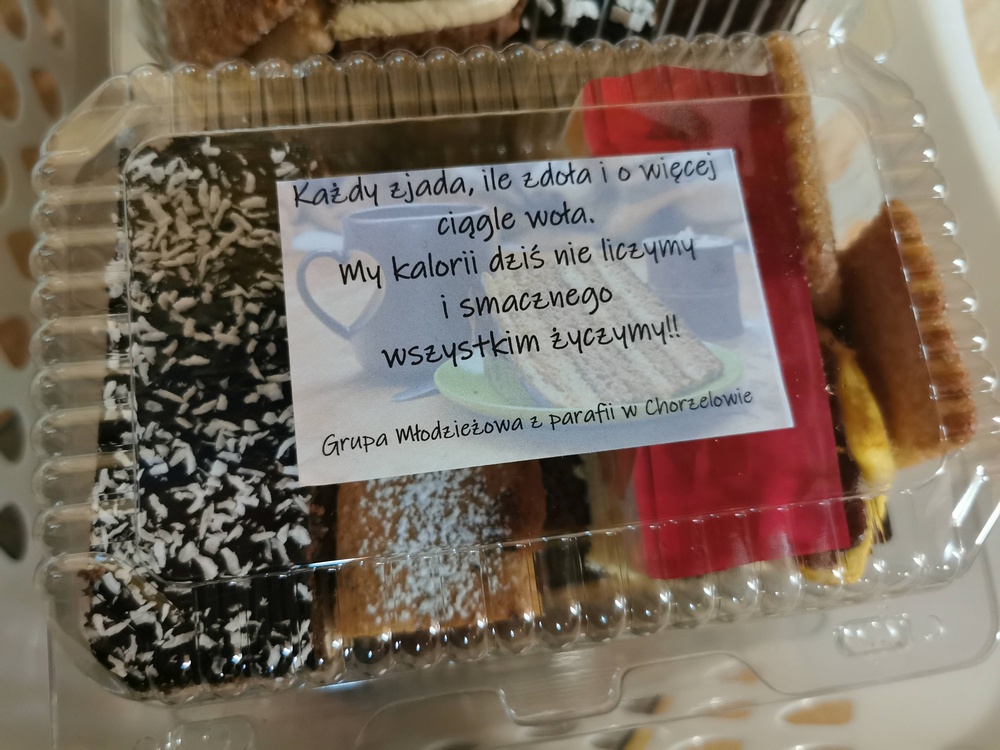 Każdy zjada, ile zdoła i o więcej
ciągle woła.
My kalorii dziś nie liczymy
i smacznego
wszystkim życzymy!!
Grupa Młodzieżowa z parafii w Chorzelowie